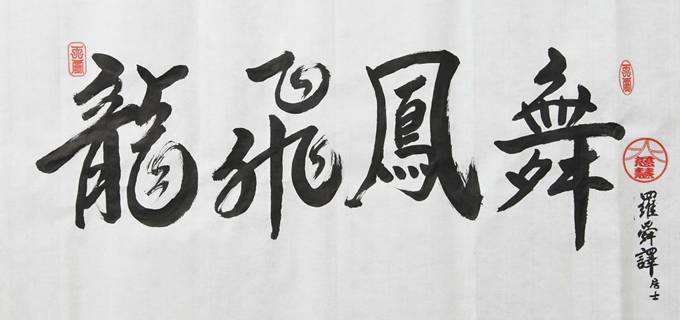 龍飛鳳舞
羅舜譯居士